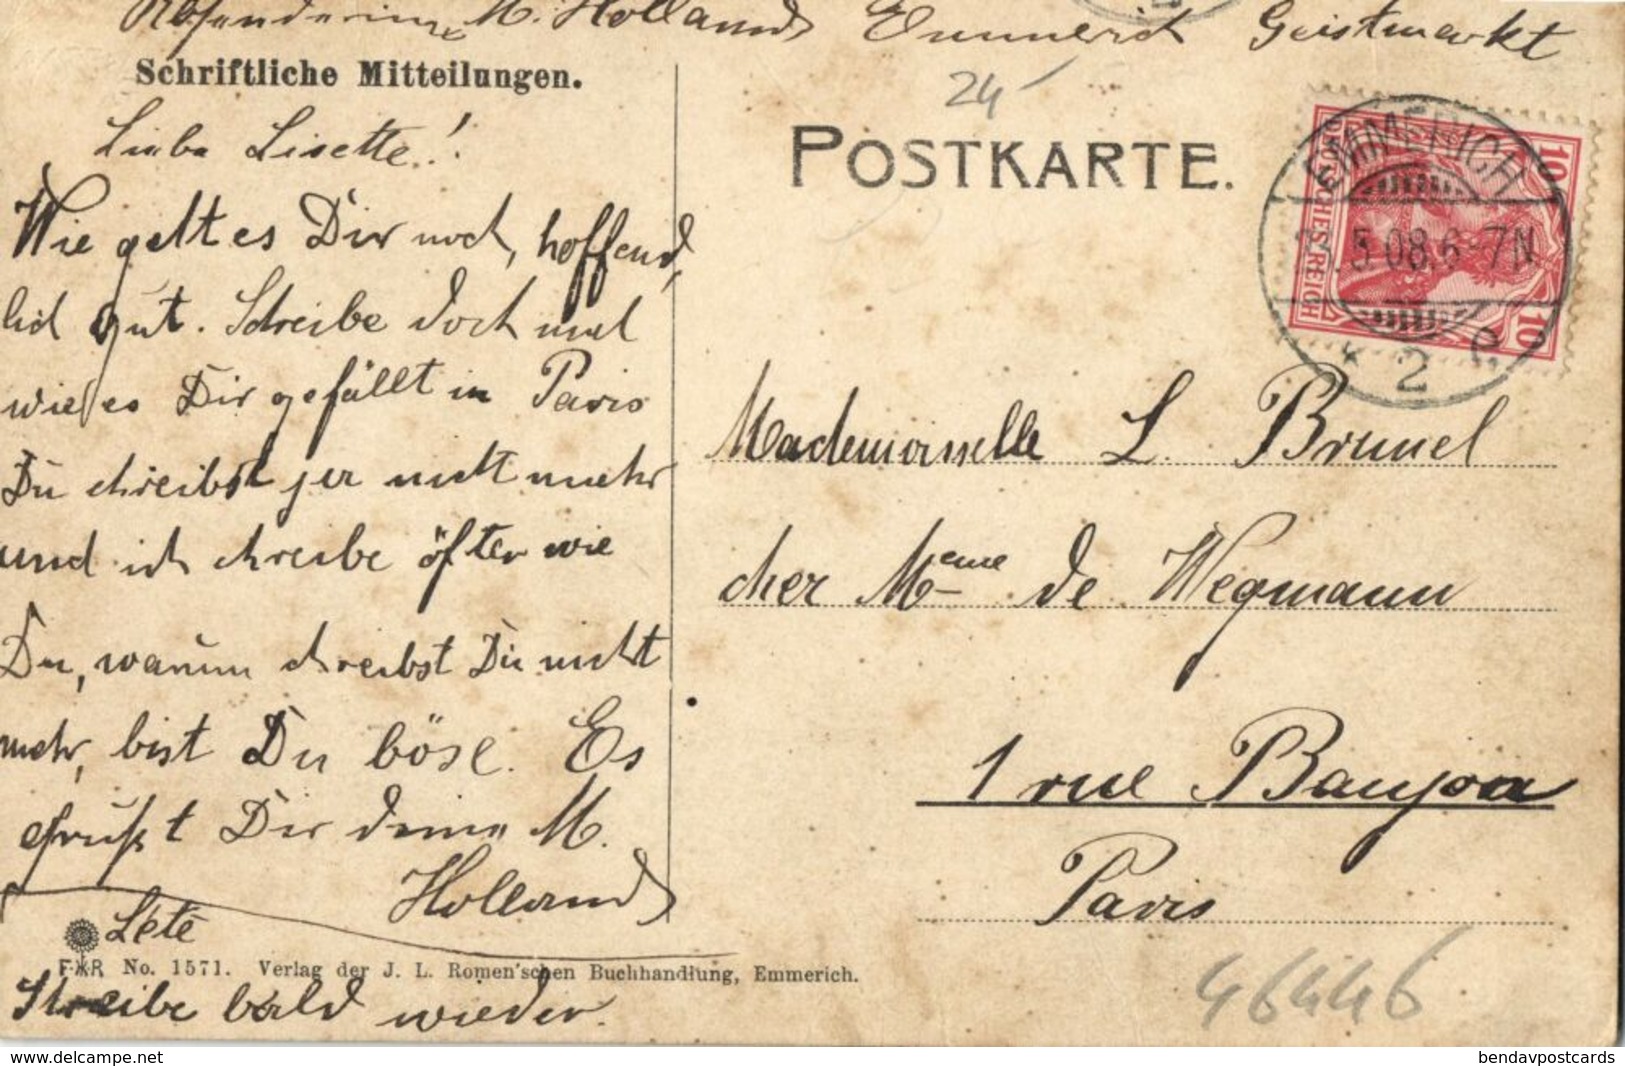 Absenderin M. Holland Emmerich Geistmarkt
Schriftliche Mitteilungen.
Liebe Lisette!
Wie geht es Dir noch, hoffend,
lich gut. Schreibe doch mal
wie es Dir gefällt in Paris
Du schreibst jer nicht mehr
und ich schreibe öfter wie
Du, warum schreibst Du nicht
mehr, bist Du böse. Es
grüßt Dir deine M.
Holland
Léte
F.R No. 1571. Verlag der J. L. Romen'schen Buchhandlung, Emmerich.
Schreibe bald wieder.
24
POSTKARTE.
EMMERICH
5 08.6-7N
* 2 c
DEUTSCHES REICH
10
10
Mademoiselle L. Brunel
cher Meme de Wegmann
1 rue Baujon
Paris
46446
delcampe.net
bendavpostcards